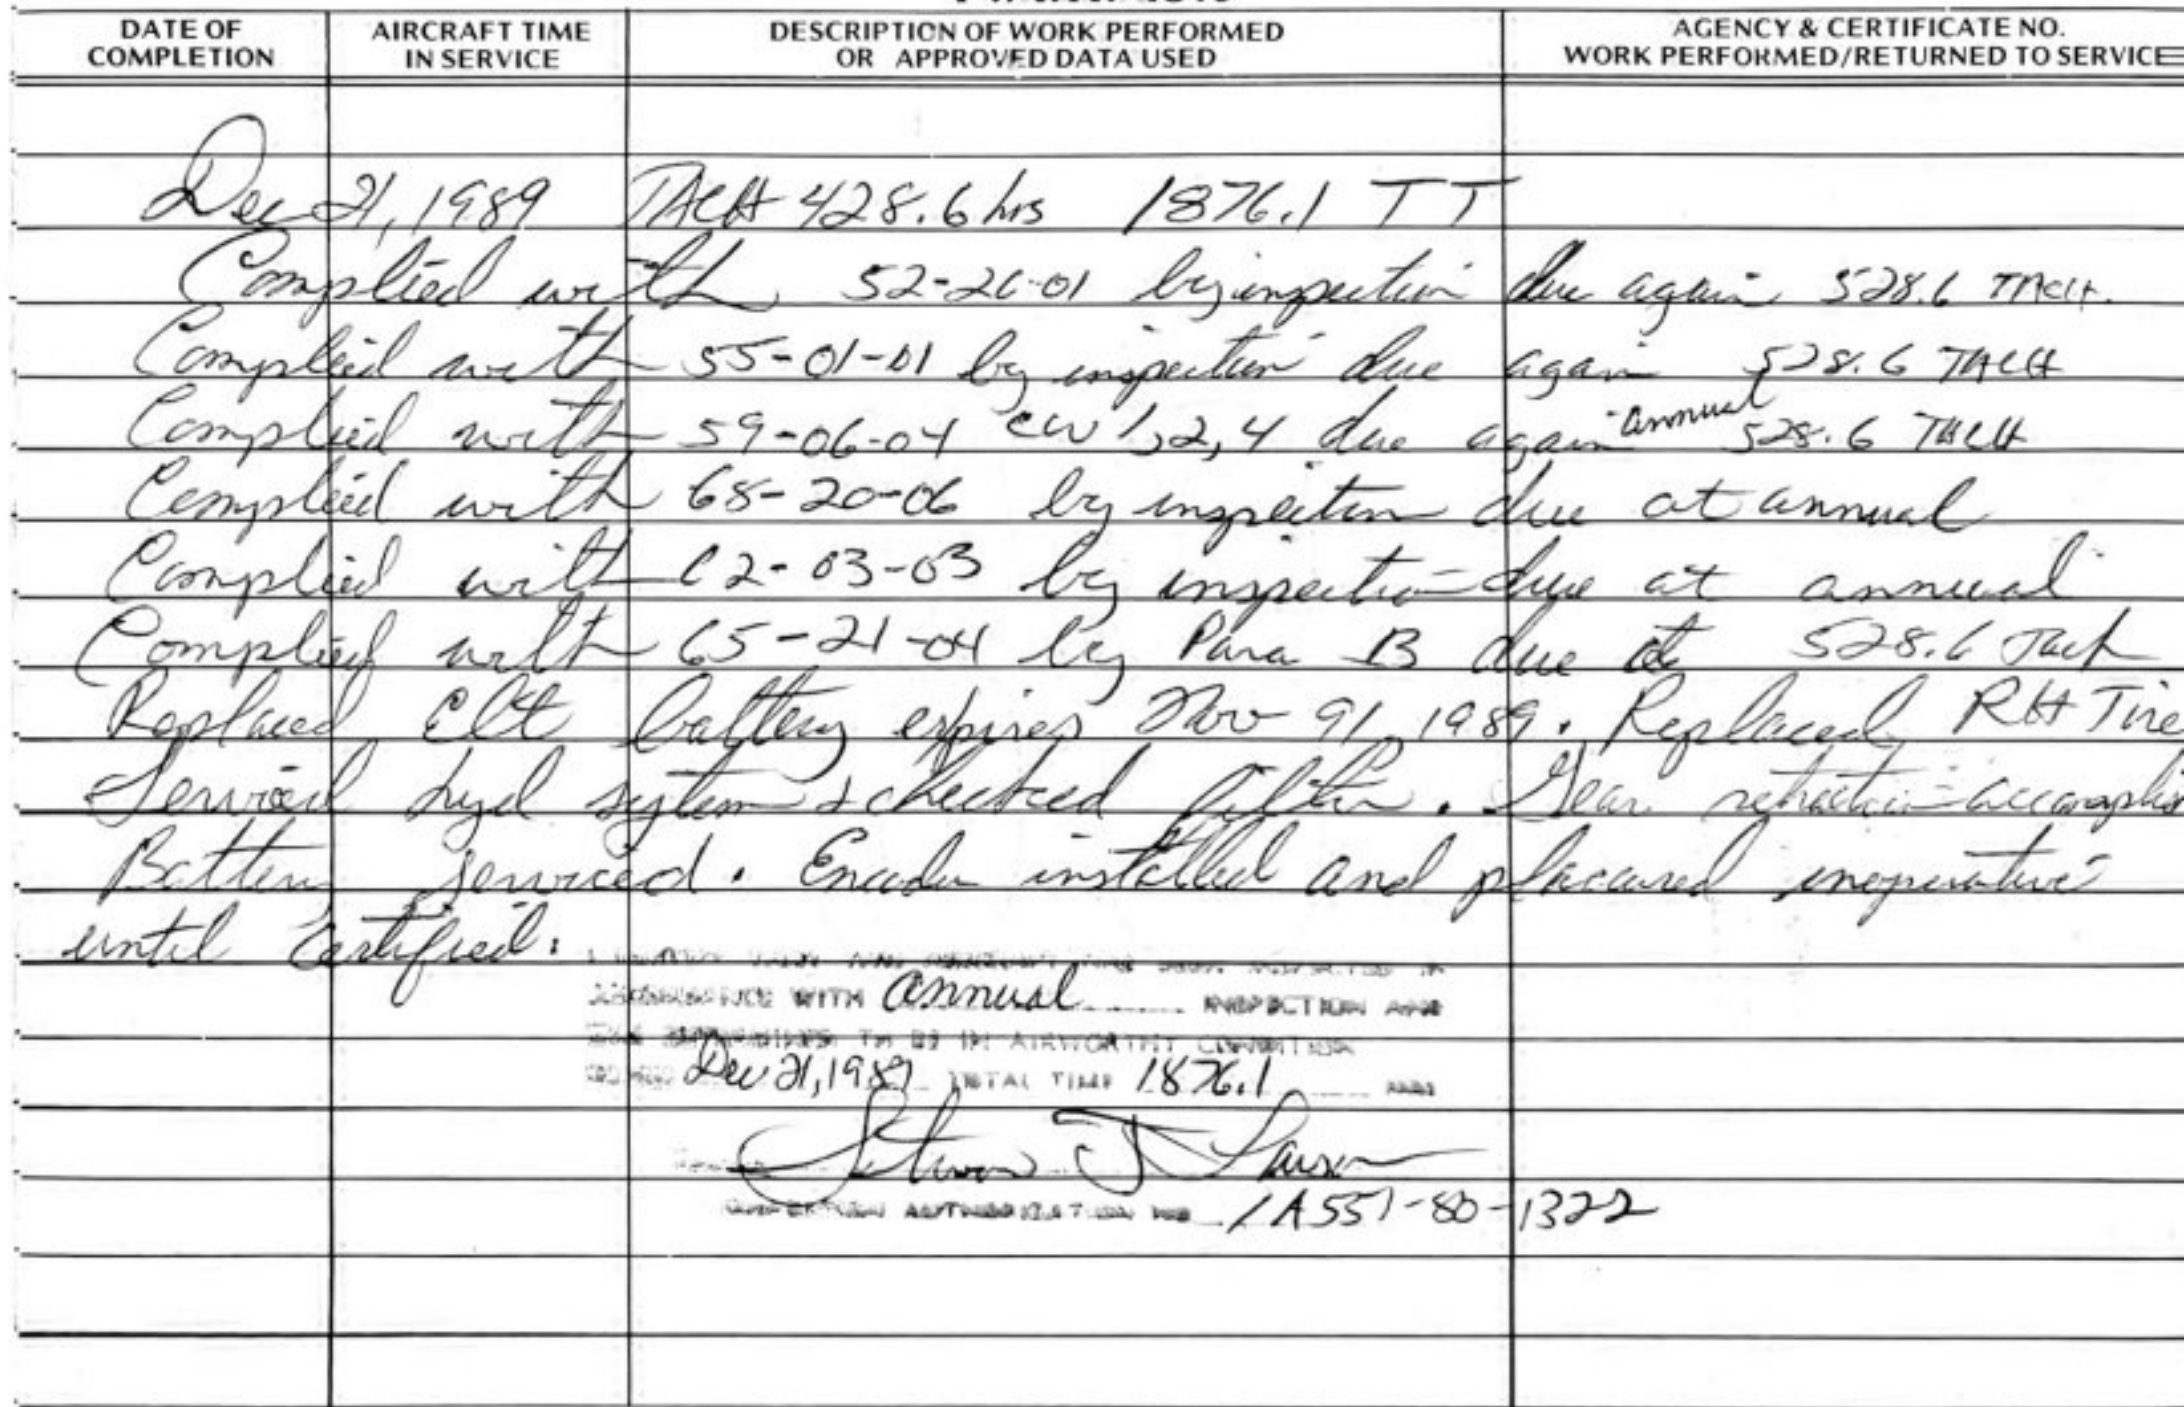 DATE OF COMPLETION
AIRCRAFT TIME IN SERVICE
DESCRIPTION OF WORK PERFORMED OR APPROVED DATA USED
AGENCY & CERTIFICATE NO. WORK PERFORMED/RETURNED TO SERVICE
Dec 21, 1989 TACH 428.6 hrs 1876.1 TT
Complied with 52-26-01 by inspection due again 528.6 TACH.
Complied with 55-01-01 by inspection due again 528.6 TACH
Complied with 59-06-04 CW 1,2,4 due again annual 528.6 TACH
Complied with 68-20-06 by inspection due at annual
Complied with 62-03-03 by inspection due at annual
Complied with 65-21-04 by Para B due at 528.6 Tach
Replaced Elt battery expires Nov 91, 1989. Replaced RH Tire
Serviced hyd system & checked filter. Gear retraction accomplis
Battery serviced. Encoder installed and placared inoperative
until certified.
WITH annual INSPECTION AND
TO BE IN AIRWORTHY CONDITION
Dec 21, 1989 TOTAL TIME 1876.1
Steven J Larson
INSPECTION AUTHORIZATION NO IA557-80-1322